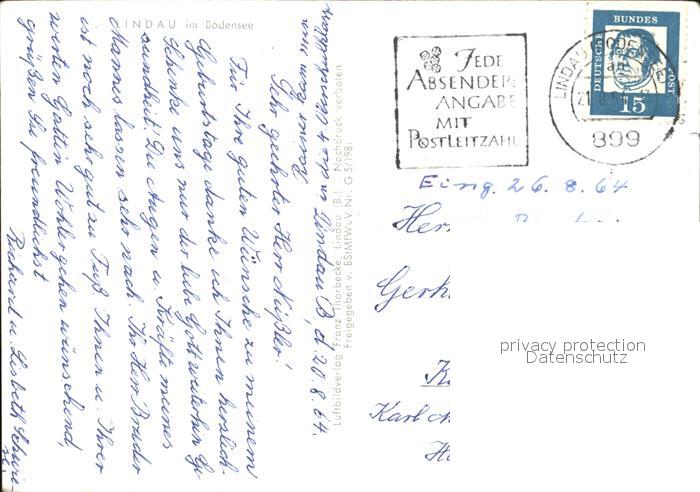 LINDAU im Bodensee
Lindau B, d. 20.8.64.
Sehr geehrter Herr
Für Ihre guten Wünsche zu meinem
Geburtstage danke ich Ihnen herzlich.
Schenke uns nur der liebe Gott weiterhin Ge-
sundheit! Die Augen u. Kräfte meines
Mannes lassen sehr nach. Ihr Herr Bruder
ist noch sehr gut zu Fuß. Ihnen u. Ihrer
werten Gattin Wohlergehen wünschend,
grüßen Sie freundlichst
Richard u. Lisbeth
Luftbildverlag Franz Thorbecke, Lindau (B.) Nachdruck verboten
Freigegeben v. BStMfWuV Nr. G 5/1981
JEDE
ABSENDER-
ANGABE
MIT
POSTLEITZAHL
DEUTSCHE BUNDESPOST
15
LINDAU
899
Eing. 26.8.64
Herr
Gerh
Karl
privacy protection
Datenschutz